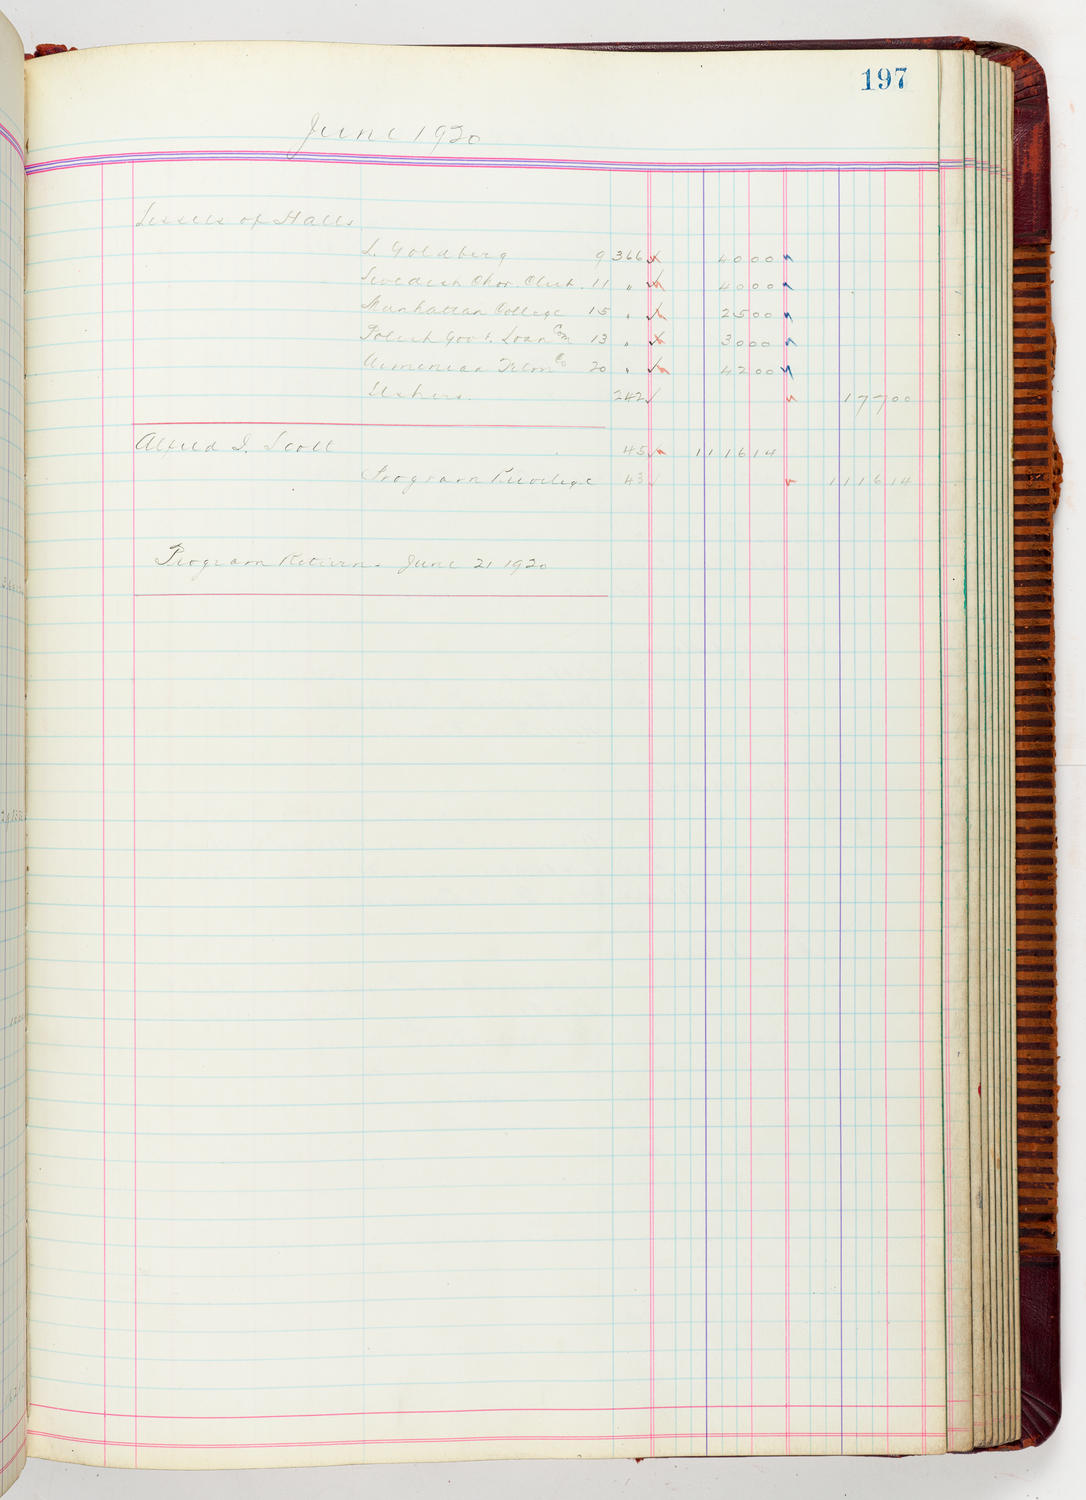 197
June 1920
Lessees of Halls
L. Goldberg 9 366 40 00
Swedish Chor. Club. 11 " 40 00
Manhattan College 15 " 25 00
Polish Gov't. Loan Com 13 " 30 00
Armenian Co 20 " 42 00
Ushers. 242 177 00
Alfred I. Scott 45 1116 14
Program Privilege 43 1116 14
Program Return. June 21 1920